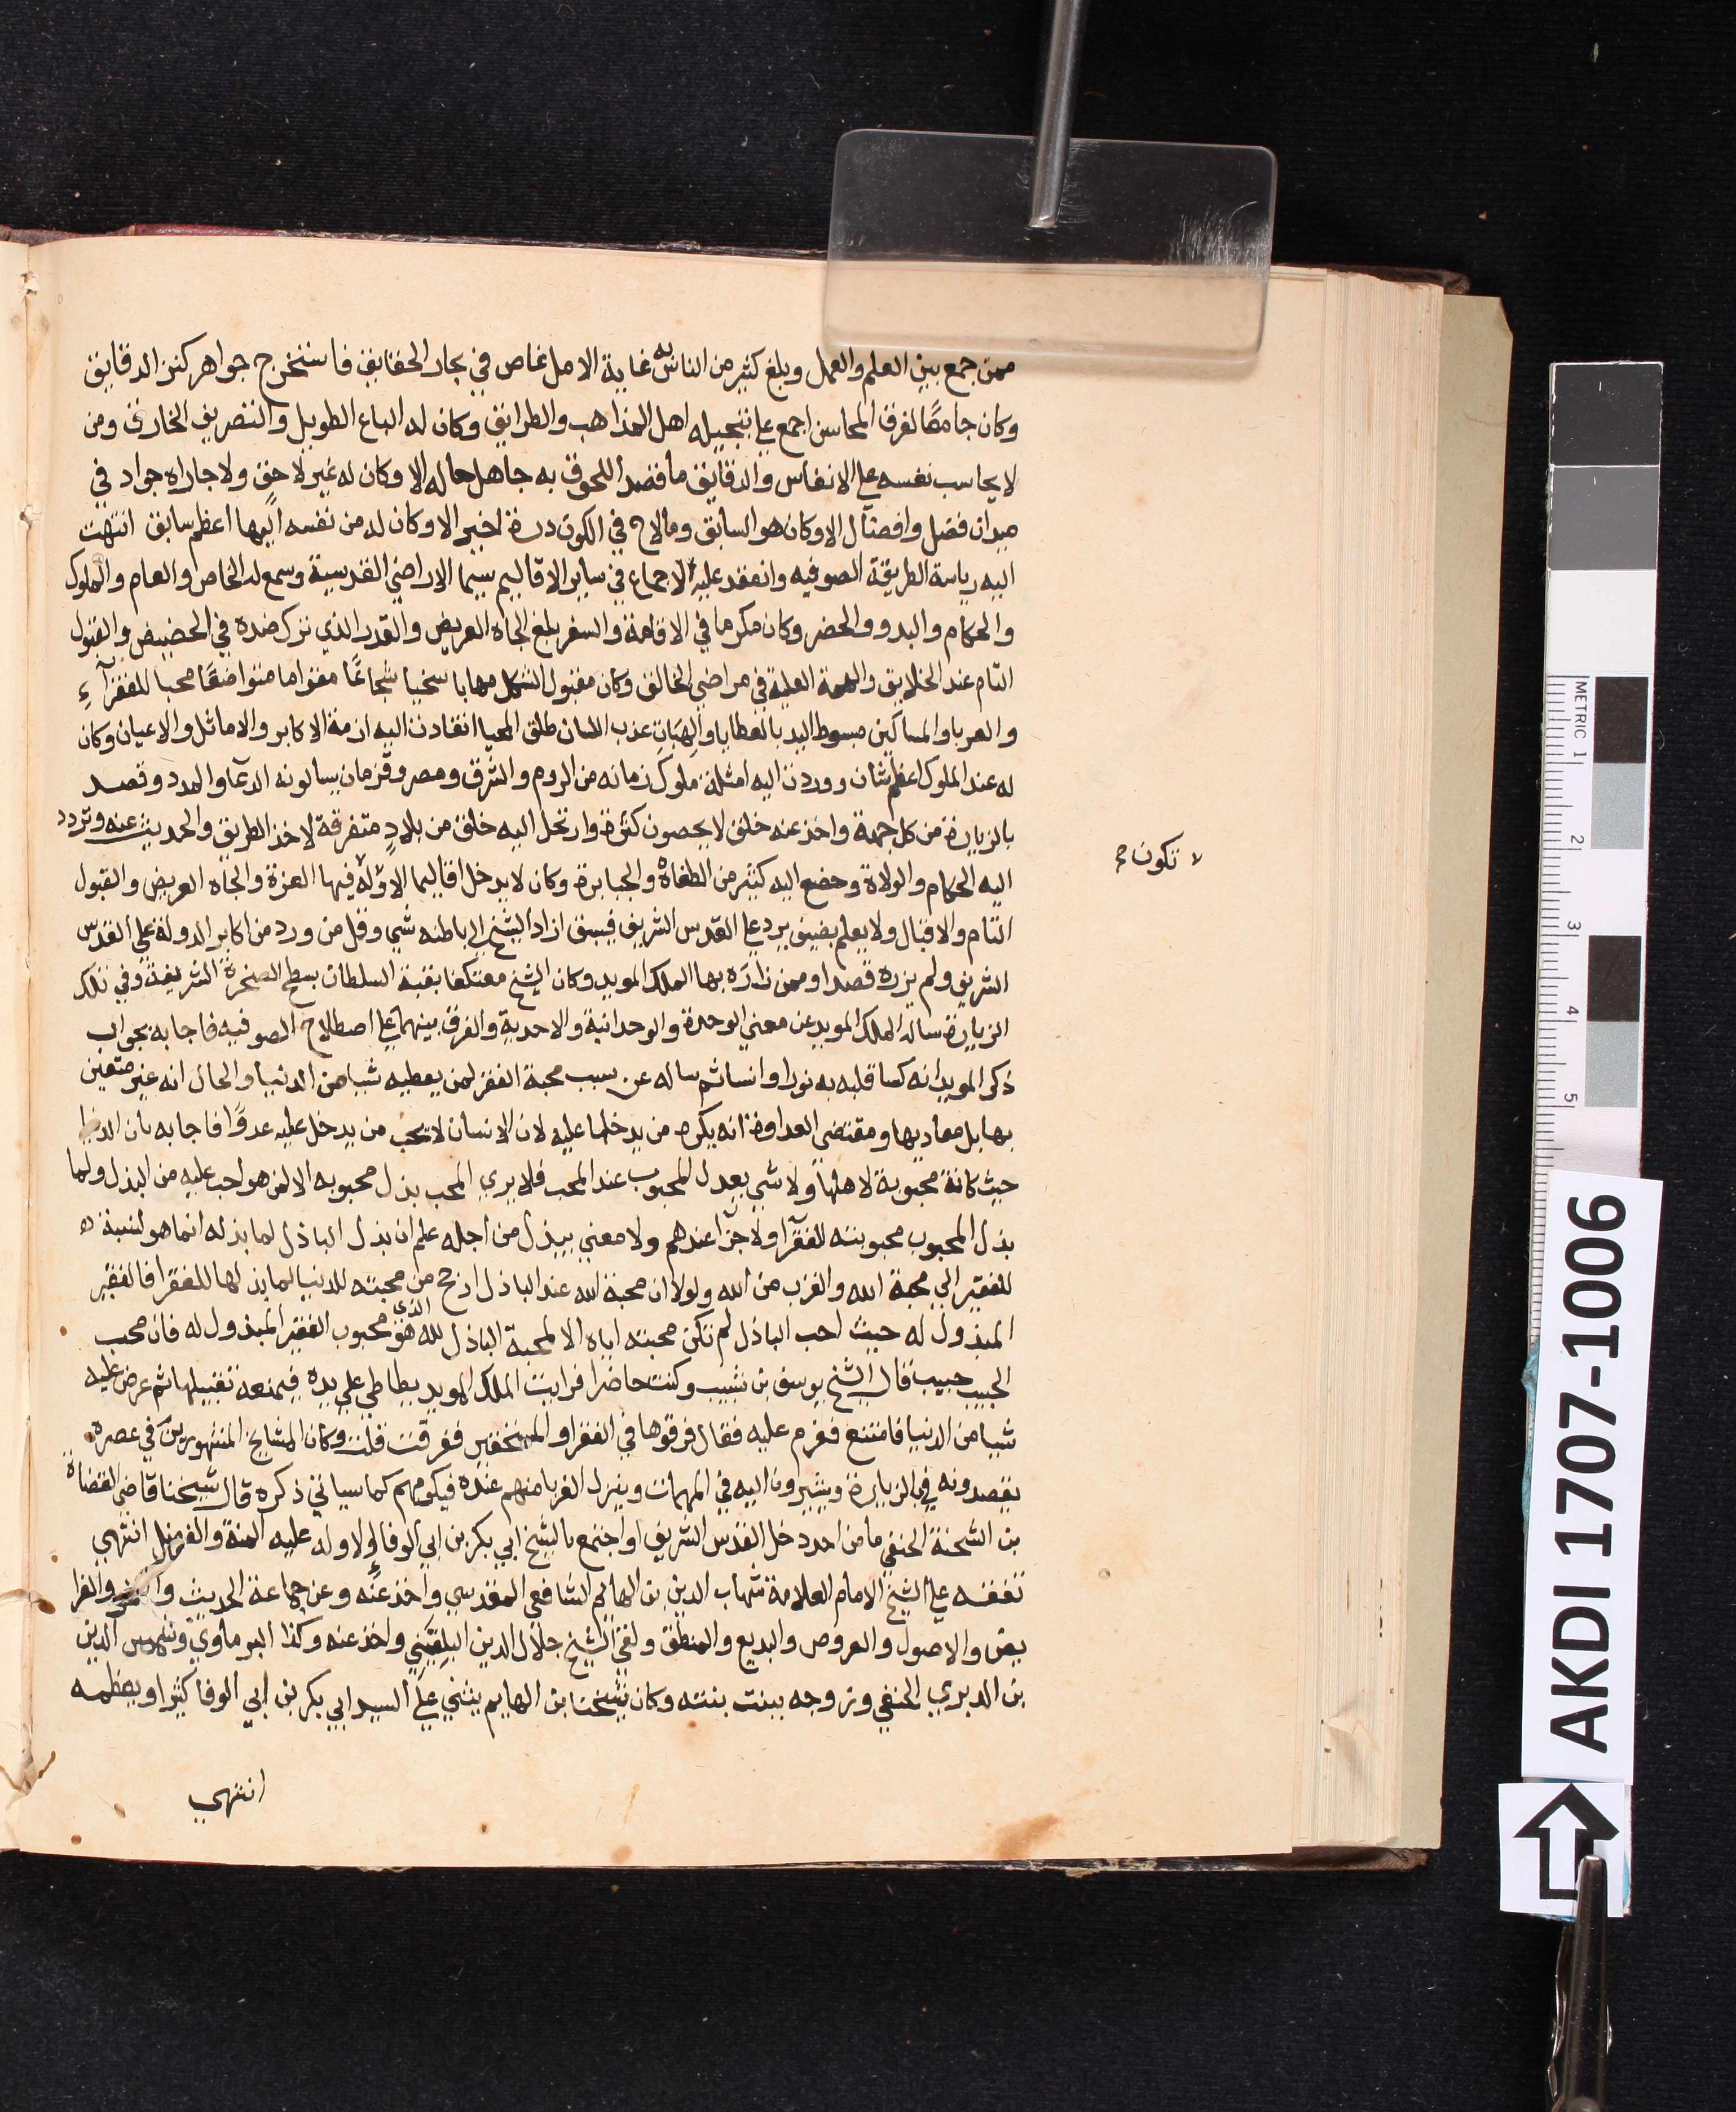 ممن جمع بين العلم والعمل وبلغ كثير من الناس به غاية الامل غاص في بحار الحقايق فاستخرج جواهر كنز الدقايق
وكان جامعًا لفرق المحاسن اجمع على تبجيله اهل المذاهب والطرايق وكان له الباع الطويل والتصريف الخارق ومن
لا يحاسب نفسه على الانفاس والدقايق ما قصد اللحوق به جاهل حاله الا وكان له غير لاحق ولا جاراه جواد في
ميدان فضل وافضال الا وكان هو السابق وما لاح في الكون درة اخير الا وكان له من نفسه اليها اعظم سابق انتهت
اليه رياسة الطريقة الصوفيه وانعقد عليه الاجماع في ساير الاقاليم سيما الاراضي القدسية وسمع له الخاص والعام والملوك
والحكام والبدو والحضر وكان مكرما في الاقامة والسفر بلغ الجاه العريض والقدر الذي ترك ضده في الحضيض والقبول
التام عند الخلايق والهمة العلية في مراضي الخالق وكان مقبول الشكل مهابا سخيا شجاعًا مقواما متواضعًا محبا للفقرآء
والغربا والمساكين مبسوط اليد بالعطايا والهبَات عذب اللسان طلق المحيا انقادت اليه ازمة الاكابر والاماثل والاعيان وكان
له عند الملوك اعظم شان ووردت اليه امثلة ملوك زمانه من الروم والشرق ومصر وقرمان يسالونه الدعا والمدد وقصد
بالزيارة من كل جهة واخذ عنه خلق لا يحصون كثرة وارتحل اليه خلق من بلادٍ متفرقة لاخذ الطريق والحديث عنه وتردد
اليه الحكام والولاة وخضع اليه كثير من الطغاة والجبابرة وكان لا يدخل اقاليما الا وله فيها العزة والجاه العريض والقبول
التام والاقبال ولا يعلم بضيف يرد على القدس الشريف فيسبق ازاد الشيخ الى باطنه شي وقل من ورد من اكابر الدولة على القدس
الشريف ولم يزره قصدا وممن زارَه بها الملك المويد وكان الشيخ معتكفا بقبة السلطان بسطح الصخرة الشريفة وفي تلك
الزيارة ساله الملك المويد عن معني الوحدة والوحدانية والاحدية والفرق بينهما على اصطلاح الصوفيه فاجابه بجواب
ذكر المويد انه كسا قلبه به نورا وانسا ثم ساله عن سبب محبة الفقر لمن يعطيه شيا من الدنيا والحال انه غير متعين
بها بل معاديها ومقتضى العداوة انه يكره من يدخلها عليه لان الانسان لا يحب من يدخل عليه عدوًا فاجابه بان الدنيا
حيث كانة محبوبة لاهلها ولا شي يعدل المحبوب عند المحب فلا يري المحب بذل محبوبه الا لمن هو احب عليه من البذل ولما
بذل المحبوب محبوبته للفقرآ ولا جزآ عندهم ولا معني يبذل من اجله علم ان بذل الباذل لما بذله انما هو لنسبة
للفقير الي محبة الله والقرب من الله ولولا ان محبة الله عند الباذل ارجح من محبته للدنيا لما بذلها للفقرا فالفقير
المبذول له حيث احب الباذل لم تكن محبته اياه الا لمحبة الباذل لله الذي هو محبوب الفقير المبذول له فان محب
الحبيب حبيب قال الشيخ يوسف بن شبيب وكنت حاضرا فرايت الملك المويد يطاطي على يده فيمنعه تقبيلها ثم عرض عليه
شيا من الدنيا فامتنع فعزم عليه فقال فرقوها في الفقرا والمستحقين ففرقت قلت وكان المشايخ المشهورين في عصره
يقصدونه في الزيارة ويشيرون اليه في المهمات وينزل الغربا منهم عنده فيكرمهم كما سياتي ذكره قال شيخنا قاضي القضاة
بن الشحنة الحنفي ما من احد دخل القدس الشريف او اجتمع بالشيخ ابي بكر بن ابي الوفا الا وله عليه المنة والفضل انتهي
تفقه على الشيخ الامام العلامة شهاب الدين بن الهايم الشافعي المقدسي واخذ عنه وعن جماعة الحديث والفرا
يض والاصول والعروض والبديع والمنطق ولقي الشيخ جلال الدين البلقيني واخذ عنه وكذا البرماوي وشمس الدين
بن الديري الحنفي وتزوجه ببنت بنته وكان شيخنا بن الهايم يثني على السيد ابي بكر بن ابي الوفا كثيرا ويعظمه
انتهي
لا تكون
AKDI 1707-1006
METRIC 1
2
3
4
5